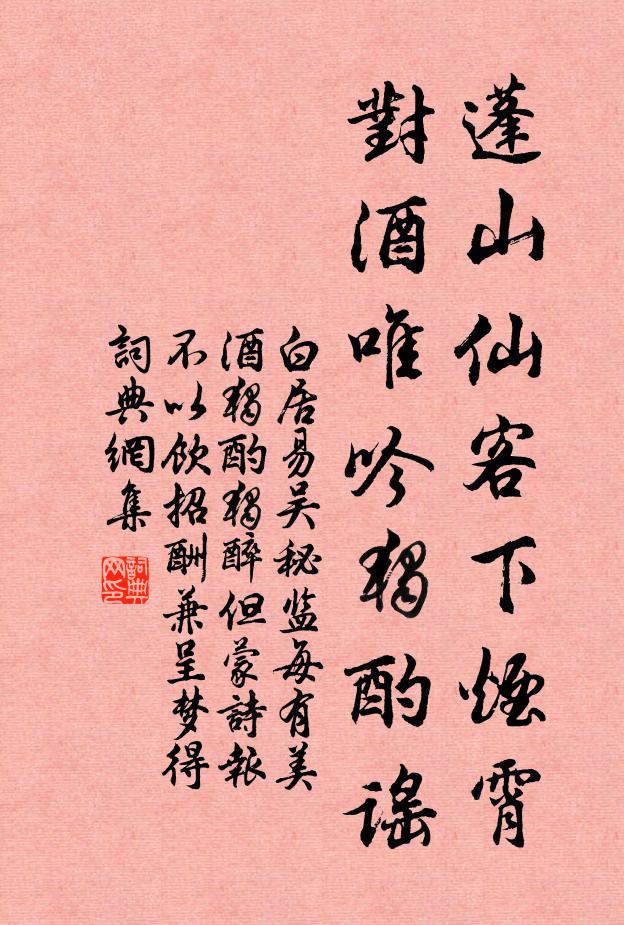 蓬山仙客下煙霄
對酒唯吟獨酌謠
白居易吴秘监每有美
酒獨酌獨醉但蒙詩報
不以飲招酬兼呈梦得
詞典網集
詞典
网印